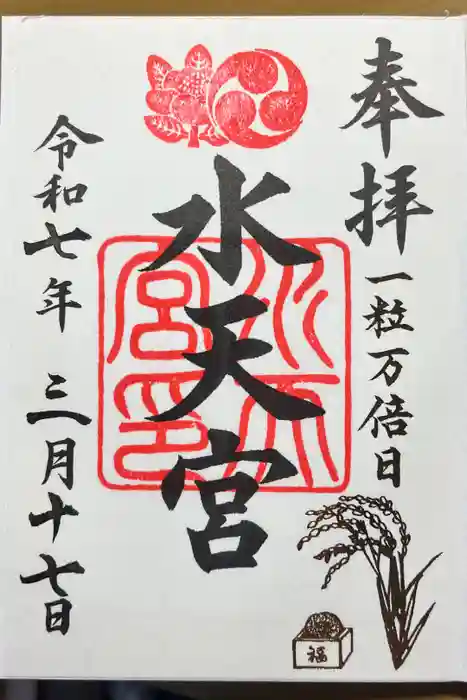 奉拝
一粒万倍日
水天宮
水天宮印
令和七年 三月十七日
福